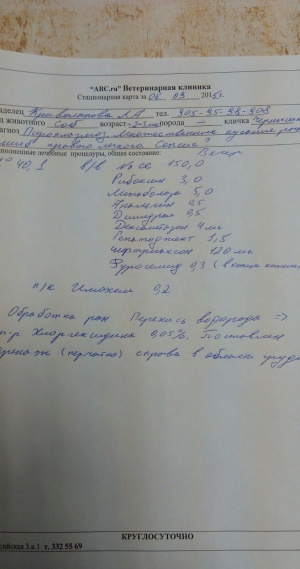 "ABC.ru" Ветеринарная клиника
Стационарная карта за 06 03 2015г.
аделец Кривощапова Л.А. тел. 905-95-93-208
д животного Соб возраст ~2-3 порода — кличка
агноз Пироплазмоз. Множественные кусаные ран
правого легкого Сепсис?
полненные лечебные процедуры, общее состояние: Вечер
t° 40,1 в/в № ce 150,0
Рибоксин 3,0
5,0
0,5
Димедрол 0,5
Дексаметазон 4 мг
Гепатоджект 1,5
Цефтриаксон 120 мг
Фуросемид 0,3 (в конце капельн
п/к 0,2
Обработка ран Перекись водорода =>
р-р Хлоргексидина 0,05%. Поставлен
дренаж (перчатка) справа в области груди
КРУГЛОСУТОЧНО
сийская 3,к.1 т. 332 55 69